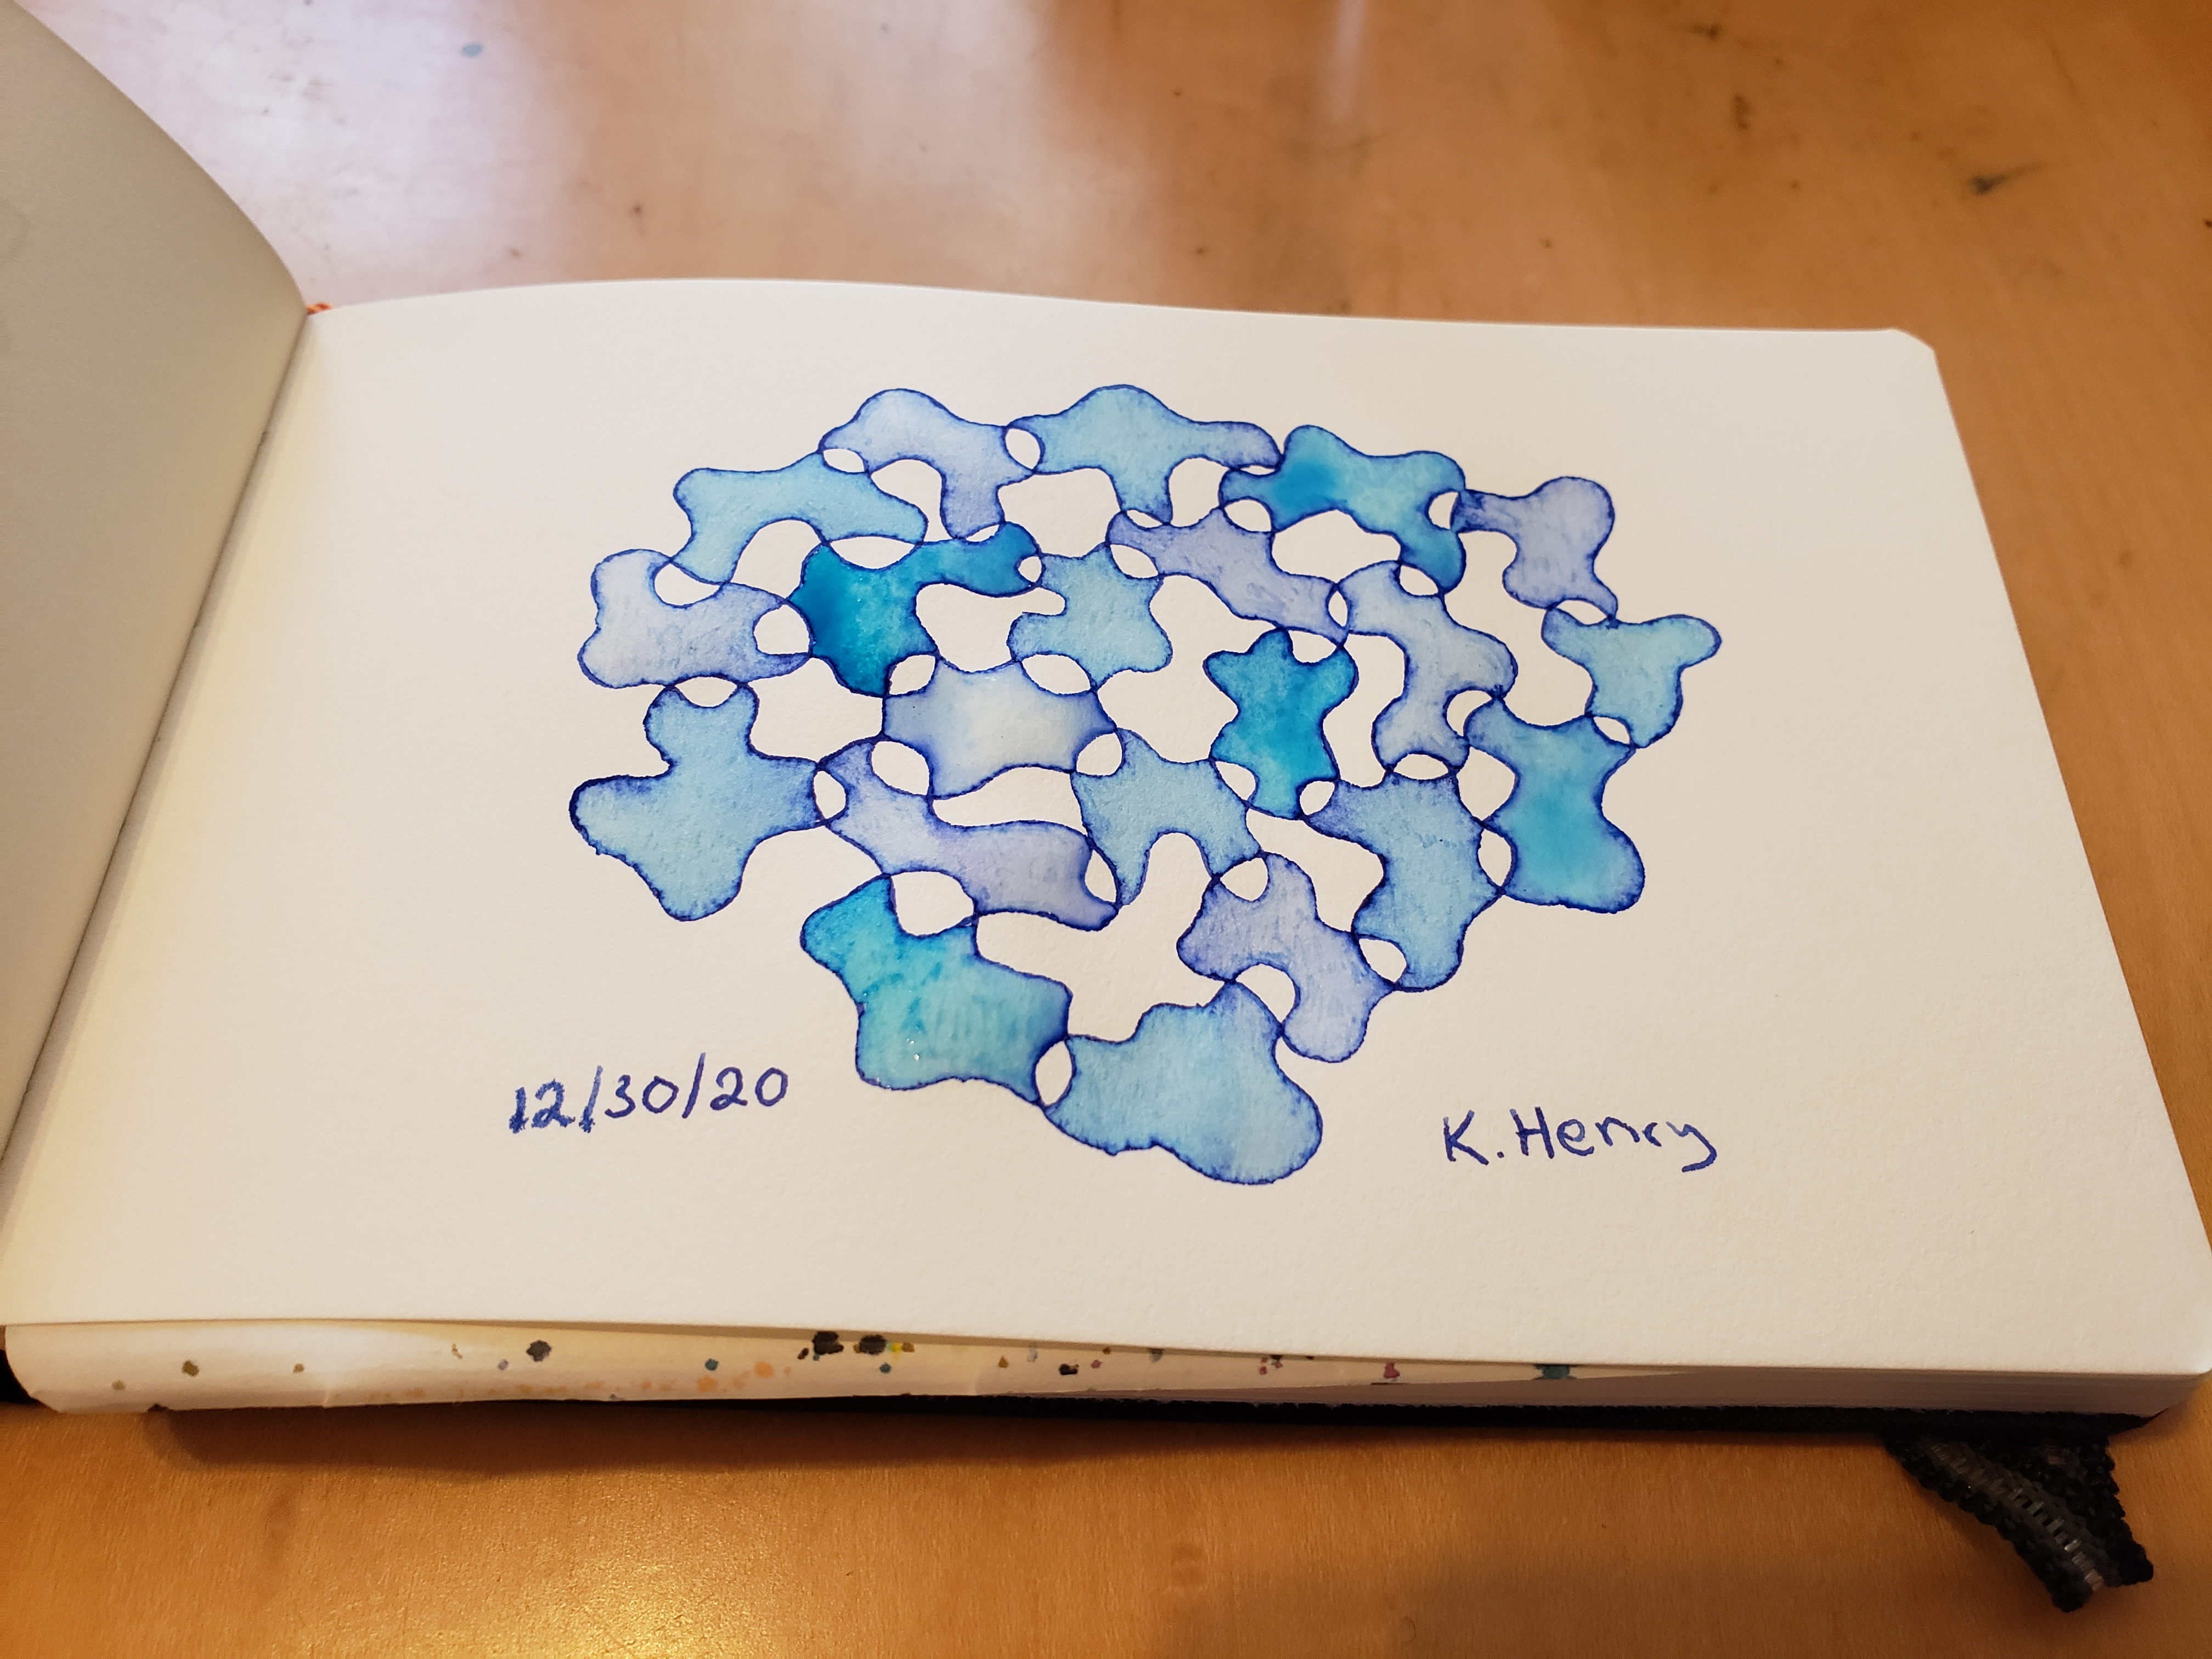 12/30/20
K. Henry